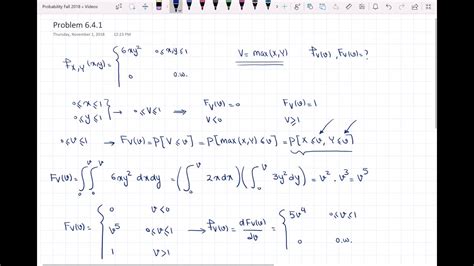 Probability Fall 2018 » Videos
Problem 6.4.1
Thursday, November 1, 2018 12:23 PM
f_{X,Y}(x,y) = { 6xy² 0≤x,y≤1
0 o.w.
V = max(X,Y) f_V(v), F_V(v)=?
0≤x≤1
0≤y≤1 → 0≤V≤1 F_V(v)=0 v<0 F_V(v)=1 v≥1
0≤v≤1 → F_V(v)=P[V≤v] = P[max(X,Y)≤v] = P[X≤v, Y≤v]
F_V(v)= ∫₀^v ∫₀^v 6xy² dxdy = (∫₀^v 2xdx)(∫₀^v 3y²dy) = v². v³ = v⁵
F_V(v) = { 0 v<0
v⁵ 0≤v≤1 → f_V(v) = dF_V(v)/dv = { 5v⁴ 0≤v≤1
0 o.w.
1 v>1